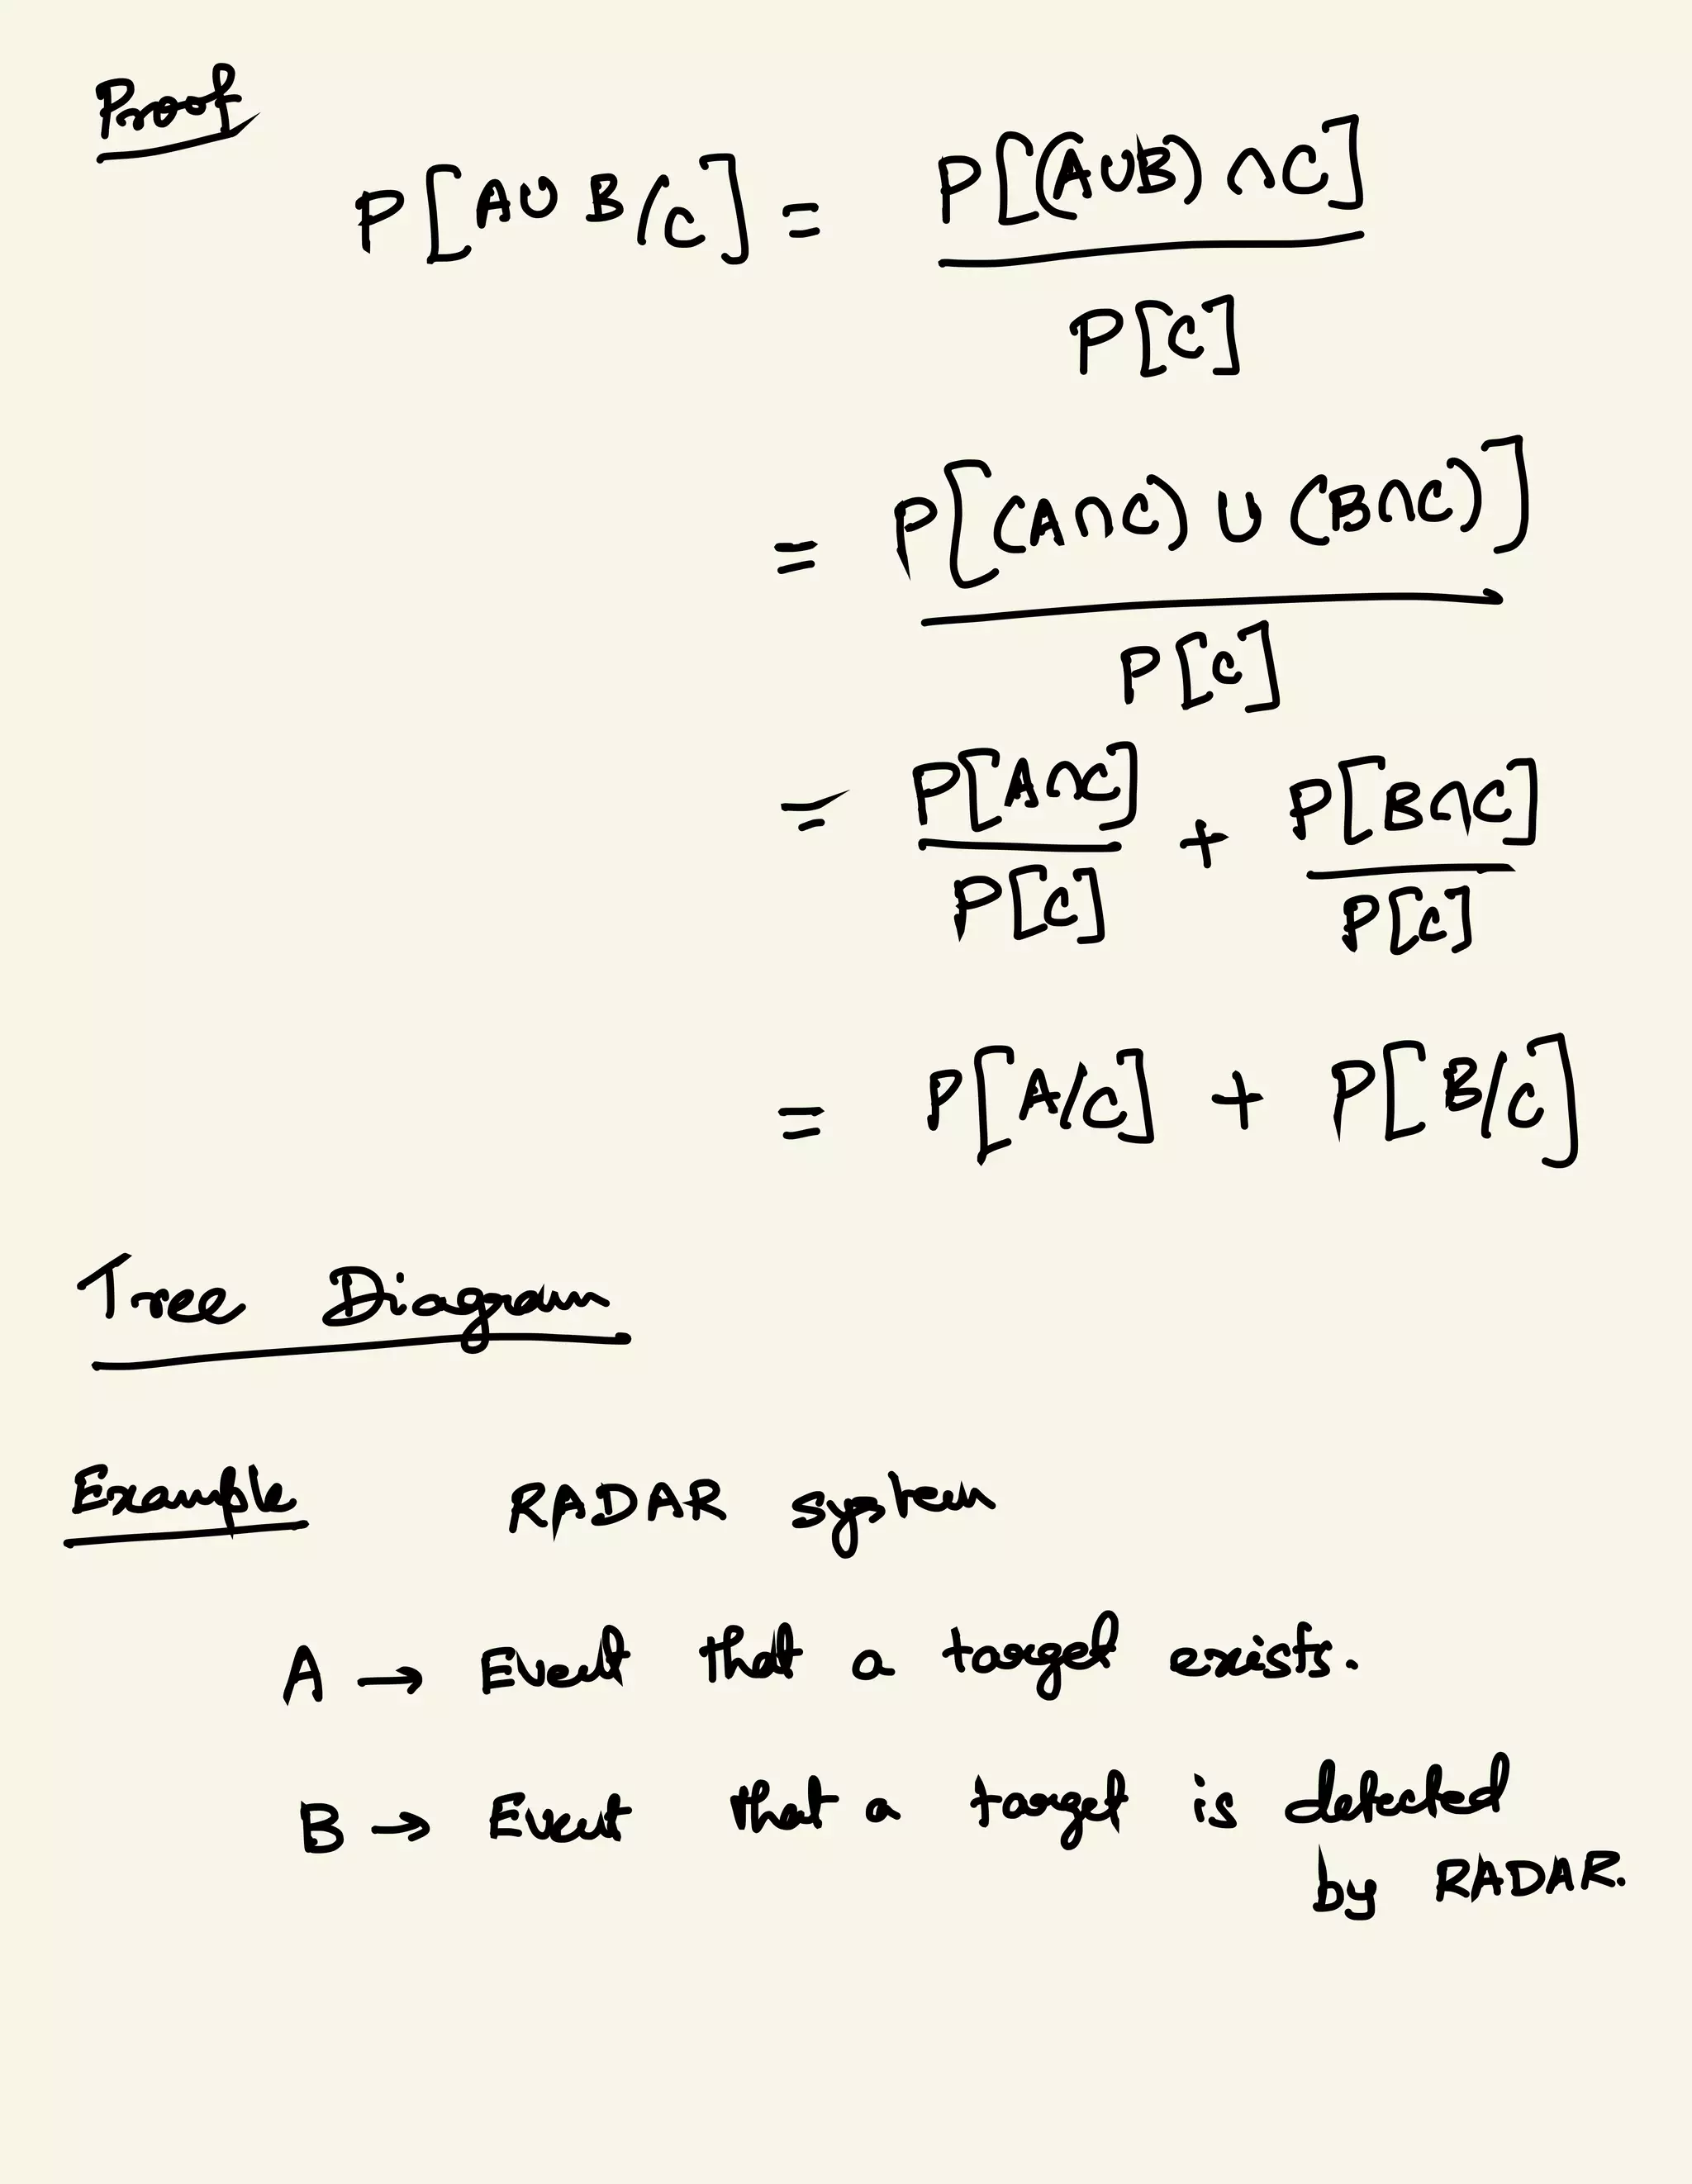 Proof
P[A∪B/C] = P[(A∪B)∩C] / P[C]
= P[(A∩C) ∪ (B∩C)] / P[C]
= P[A∩C] / P[C] + P[B∩C] / P[C]
= P[A/C] + P[B/C]
Tree Diagram
Example RADAR system
A → Event that a target exists.
B → Event that a target is detected
by RADAR.